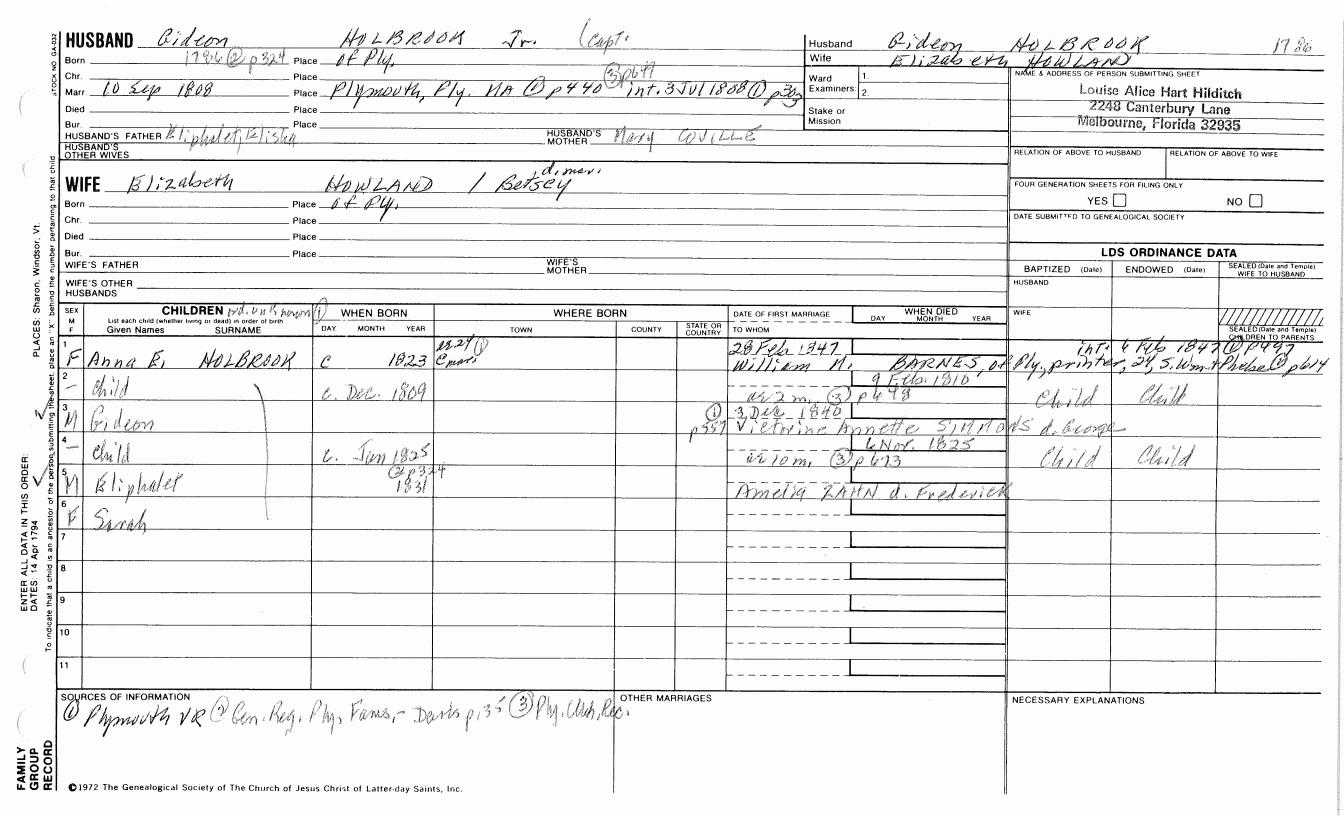 STOCK NO. GA-032
HUSBAND Gideon HOLBROOK Jr. (Capt.
Born 1786 ② p324 Place of Ply.
Chr. Place ③ p647
Marr 10 Sep 1808 Place Plymouth, Ply. MA ① p440 int. 3 Jul 1808 ①
Died Place
Bur. Place
HUSBAND'S FATHER Eliphalet, Elisha HUSBAND'S MOTHER Mary COVILLE
HUSBAND'S OTHER WIVES
Husband Gideon HOLBROOK 1786
Wife Elizabeth HOWLAND
Ward Examiners 1. 2.
Stake or Mission
NAME & ADDRESS OF PERSON SUBMITTING SHEET
Louise Alice Hart Hilditch
2248 Canterbury Lane
Melbourne, Florida 32935
RELATION OF ABOVE TO HUSBAND RELATION OF ABOVE TO WIFE
FOUR GENERATION SHEETS FOR FILING ONLY
YES NO
DATE SUBMITTED TO GENEALOGICAL SOCIETY
d. mar.
WIFE Elizabeth HOWLAND / Betsey
Born Place of Ply.
Chr. Place
Died Place
Bur. Place
WIFE'S FATHER WIFE'S MOTHER
WIFE'S OTHER HUSBANDS
LDS ORDINANCE DATA
BAPTIZED (Date) ENDOWED (Date) SEALED (Date and Temple) WIFE TO HUSBAND
HUSBAND
WIFE
SEALED (Date and Temple) CHILDREN TO PARENTS
SEX M F
CHILDREN ①
List each child (whether living or dead) in order of birth
Given Names SURNAME
WHEN BORN DAY MONTH YEAR
WHERE BORN TOWN COUNTY STATE OR COUNTRY
DATE OF FIRST MARRIAGE TO WHOM
WHEN DIED DAY MONTH YEAR
1 ae 24 ① 28 Feb 1847 int. 6 Feb 1847 ① p497
F Anna E. HOLBROOK c 1823 @ mar. William M. BARNES, of Ply., printer, 24, S. Wm + Phebe ① p614
2 9 Feb. 1810
- Child c. Dec. 1809 ae 2 m. ③ p678 Child Child
3 ① 3 Dec. 1840
M Gideon p557 Victrine Annette SIMMONS d. George
4 6 Nov. 1825
- Child c. Jan 1825 ae 10 m. ③ p673 Child Child
5 ② p324
M Eliphalet 1831 Amelia ZAHN d. Frederick
6
F Sarah
7
8
9
10
11
SOURCES OF INFORMATION
① Plymouth VR ② Gen. Reg. Ply. Fams. - Davis p. 135 ③ Ply. Chh. Rec.
OTHER MARRIAGES
NECESSARY EXPLANATIONS
©1972 The Genealogical Society of The Church of Jesus Christ of Latter-day Saints, Inc.
FAMILY GROUP RECORD
ENTER ALL DATA IN THIS ORDER:
DATES: 14 Apr 1794
PLACES: Sharon, Windsor, Vt.
To indicate that a child is an ancestor of the person submitting the sheet, place an "X" behind the number pertaining to that child.